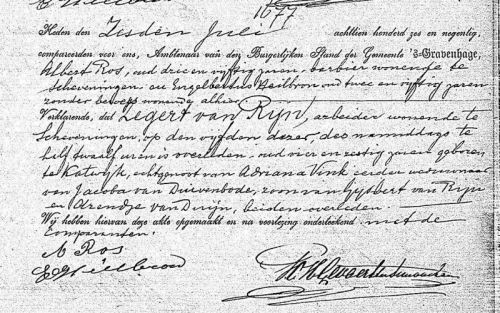 1677
Heden den Zesden Juli achttien honderd zes en negentig,
compareerden voor ons, Ambtenaar van den Burgerlijken Stand der Gemeente 's-Gravenhage,
Albert Ros, oud drie en vijftig jaren, barbier wonende te
Scheveningen en Engelbertus Heilbron oud twee en vijftig jaren
zonder beroep wonende alhier
Verklarende, dat Zegert van Rijn, arbeider wonende te
Scheveningen, op den vijfden dezer, des namiddags te
half twaalf uren is overleden oud vier en zestig jaren geboren
te Katwijk, echtgenoot van Adriana Vink eerder weduwnaar
van Jacoba van Duivenbode, zoon van Gijsbert van Rijn
en van Duijn, beiden overleden.
Wij hebben hiervan deze akte opgemaakt en na voorlezing onderteekend met de
comparanten.
A Ros